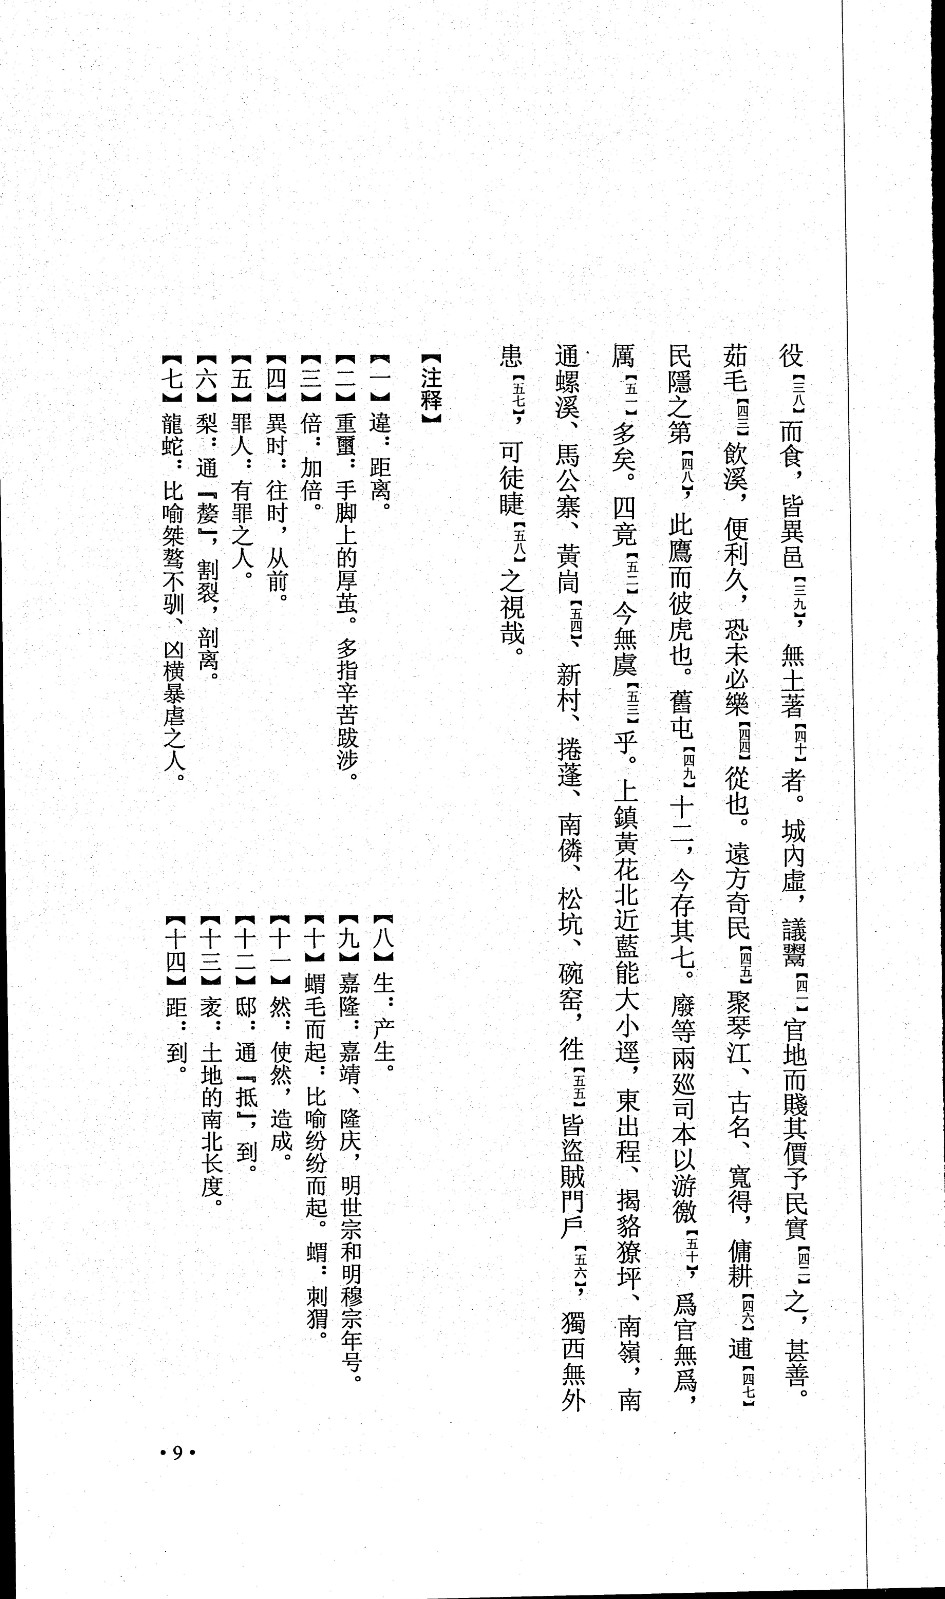 役【三八】而食，皆異邑【三九】，無土著【四十】者。城內虛，議鬻【四一】官地而賤其價予民實【四二】之，甚善。
茹毛【四三】飲溪，便利久，恐未必樂【四四】從也。遠方奇民【四五】聚琴江、古名、寬得，傭耕【四六】逋【四七】
民隱之第【四八】，此鷹而彼虎也。舊屯【四九】十二，今存其七。廢等兩廵司本以游徼【五十】，爲官無爲，
厲【五一】多矣。四竟【五二】今無虞【五三】乎。上鎮黃花北近藍能大小逕，東出程、揭貉獠坪、南嶺，南
通螺溪、馬公寨、黃崗【五四】、新村、捲蓬、南僯、松坑、碗窑，徃【五五】皆盜賊門戶【五六】，獨西無外
患【五七】，可徒睫【五八】之視哉。
【注释】
【一】違：距离。
【二】重躉：手脚上的厚茧。多指辛苦跋涉。
【三】倍：加倍。
【四】異时：往时，从前。
【五】罪人：有罪之人。
【六】梨：通『嫠』，割裂，剖离。
【七】龍蛇：比喻桀骜不驯、凶横暴虐之人。
【八】生：产生。
【九】嘉隆：嘉靖、隆庆，明世宗和明穆宗年号。
【十】蝟毛而起：比喻纷纷而起。蝟：刺猬。
【十一】然：使然，造成。
【十二】邸：通『抵』，到。
【十三】袤：土地的南北长度。
【十四】距：到。
·9·